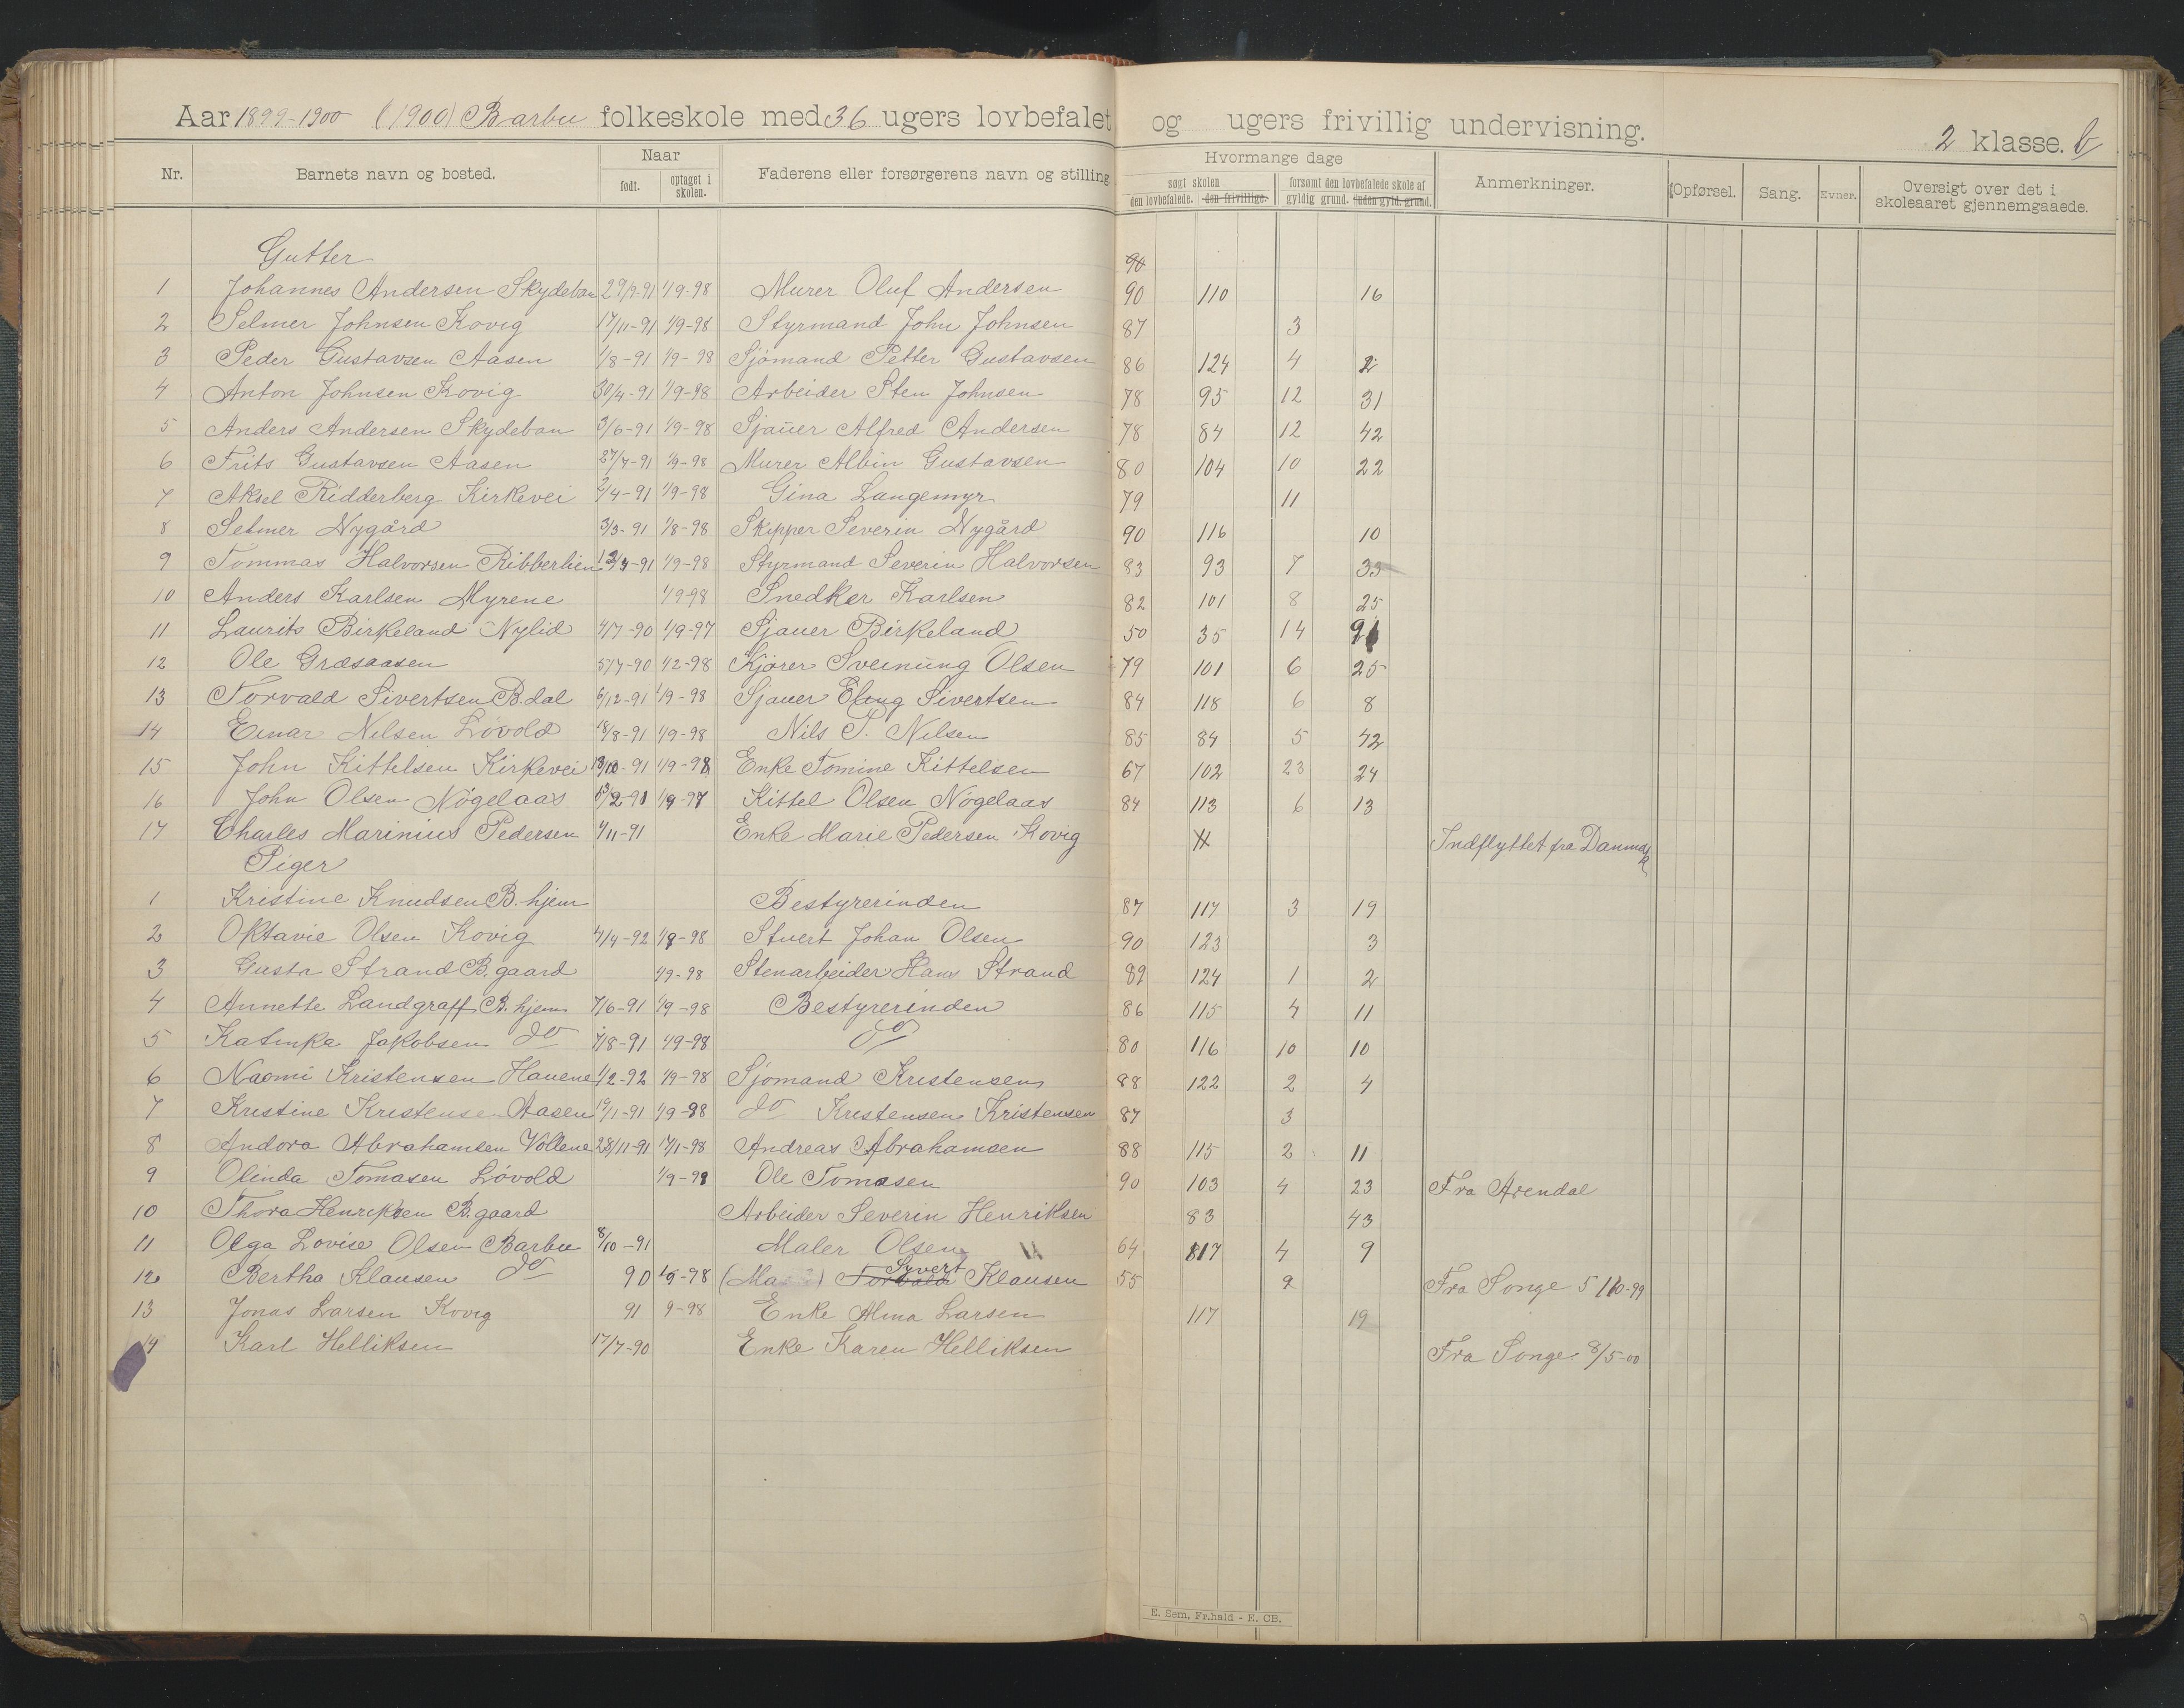 Aar 1899-1900 (1900) Barbu folkeskole med 36 ugers lovbefalet og ugers frivillig undervisning. 2 klasse. b
Nr. Barnets navn og bosted. Naar Faderens eller forsørgerens navn og stilling Hvormange dage Anmerkninger. Opførsel. Sang. Evner. Oversigt over det i skoleaaret gjennemgaaede.
født. optaget i skolen. søgt skolen forsømt den lovbefalede skole af
den lovbefalede. den frivillige. gyldig grund. uden gyld. grund.
Gutter 90
1 Johannes Andersen Skydeban 29/9-91 1/9-98 Murer Oluf Andersen 90 110 16
2 Selmer Johnsen Kovig 17/11-91 1/9-98 Styrmand John Johnsen 87 3
3 Peder Gustavsen Aasen 1/8-91 1/9-98 Sjømand Petter Gustavsen 86 124 4 2
4 Anton Johnsen Kovig 30/4-91 1/9-98 Arbeider Sten Johnsen 78 95 12 31
5 Anders Andersen Skydeban 3/6-91 1/9-98 Sjauer Alfred Andersen 78 84 12 42
6 Frits Gustavsen Aasen 27/7-91 1/9-98 Murer Albin Gustavsen 80 104 10 22
7 Aksel Ridderberg Kirkevei 2/4-91 1/9-98 Gina Langemyr 79 11
8 Selmer Nygård 3/3-91 1/8-98 Skipper Severin Nygård 90 116 10
9 Tommas Halvorsen Ribberlien 1/9-98 Styrmand Severin Halvorsen 83 93 7 33
10 Anders Karlsen Myrene 1/9-98 Snedker Karlsen 82 101 8 25
11 Laurits Birkeland Nylid 4/7-90 1/9-97 Sjauer Birkeland 50 35 14 91
12 Ole Græsaasen 5/7-90 1/2-98 Kjører Sveinung Olsen 79 101 6 25
13 Torvald Sivertsen B.dal 6/12-91 1/9-98 Sjauer Elang Sivertsen 84 118 6 8
14 Einar Nilsen Løvold 18/8-91 1/9-98 Nils P. Nilsen 85 84 5 42
15 John Kittelsen Kirkevei 18/10-91 1/9-98 Enke Tomine Kittelsen 67 102 23 24
16 John Olsen Nøgelaas 13/2-91 1/9-97 Kittel Olsen Nøgelaas 84 113 6 13
17 Charles Marinius Pedersen 4/11-91 Enke Marie Pedersen Kovig Indflyttet fra Danmark
Piger
1 Kristine Knudsen B. hjem Bestyrerinden 87 117 3 19
2 Oktavie Olsen Kovig 4/4-92 1/8-98 Stuert Johan Olsen 90 123 3
3 Gusta Strand B. gaard 1/9-98 Stenarbeider Hans Strand 89 124 1 2
4 Annette Landgraff B. hjem 7/6-91 1/9-98 Bestyrerinden 86 115 4 11
5 Katinka Jakobsen do 7/8-91 1/9-98 do 80 116 10 10
6 Naomi Kristensen Hauene 1/2-92 1/9-98 Sjømand Kristensen 88 122 2 4
7 Kristine Kristensen Aasen 19/1-91 1/9-98 do Kristensen Kristensen 87 3
8 Andora Abrahamsen Vollene 28/11-91 17/1-98 Andreas Abrahamsen 88 115 2 11
9 Olinda Tomasen Løvold 1/9-98 Ole Tomasen 90 103 4 23 Fra Arendal
10 Thora Henriksen B. gaard Arbeider Severin Henriksen 83 43
11 Olga Lovise Olsen Barbu 8/10-91 Maler Olsen 64 117 4 9
12 Bertha Klausen do 90 1/9-98 Torvald Syvert Klausen 55 9 Fra Songe 5/10-99
13 Jonas Larsen Kovig 91 9-98 Enke Alma Larsen 117 19
14 Karl Helliksen 17/7-90 Enke Karen Helliksen Fra Songe 8/5-00
E. Sem, Fr.hald - E. CB.